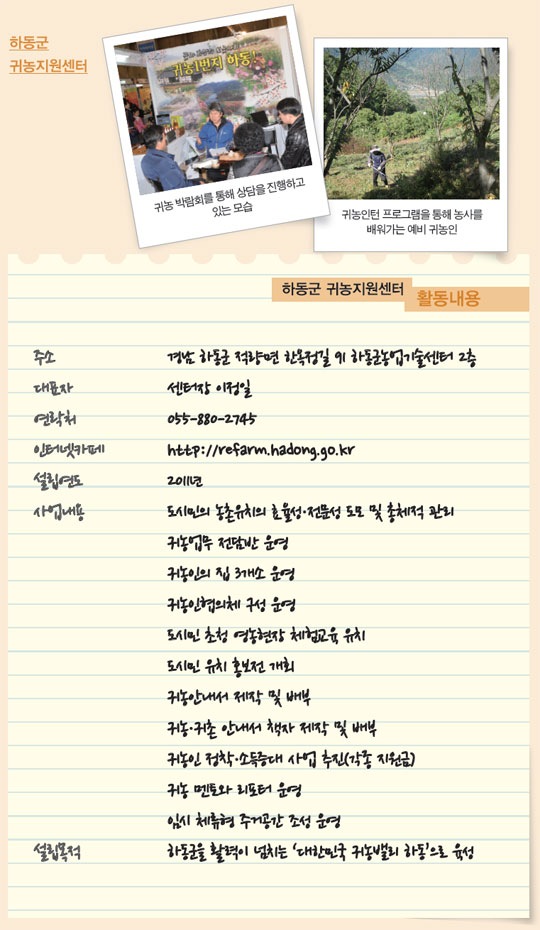 하동군
귀농지원센터
귀농1번지 하동!
귀농 박람회를 통해 상담을 진행하고
있는 모습
귀농인턴 프로그램을 통해 농사를
배워가는 예비 귀농인
하동군 귀농지원센터
활동내용
주소 경남 하동군 적량면 한옥정길 91 하동군농업기술센터 2층
대표자 센터장 이정일
연락처 055-880-2745
인터넷카페 http://refarm.hadong.go.kr
설립연도 2011년
사업내용 도시민의 농촌유치의 효율성·전문성 도모 및 총체적 관리
귀농업무 전담반 운영
귀농인의 집 3개소 운영
귀농인협의체 구성 운영
도시민 초청 영농현장 체험교육 유치
도시민 유치 홍보전 개최
귀농안내서 제작 및 배부
귀농·귀촌 안내서 책자 제작 및 배부
귀농인 정착·소득증대 사업 추진(각종 지원금)
귀농 멘토와 리포터 운영
임시 체류형 주거공간 조성 운영
설립목적 하동군을 활력이 넘치는 '대한민국 귀농밸리 하동'으로 육성